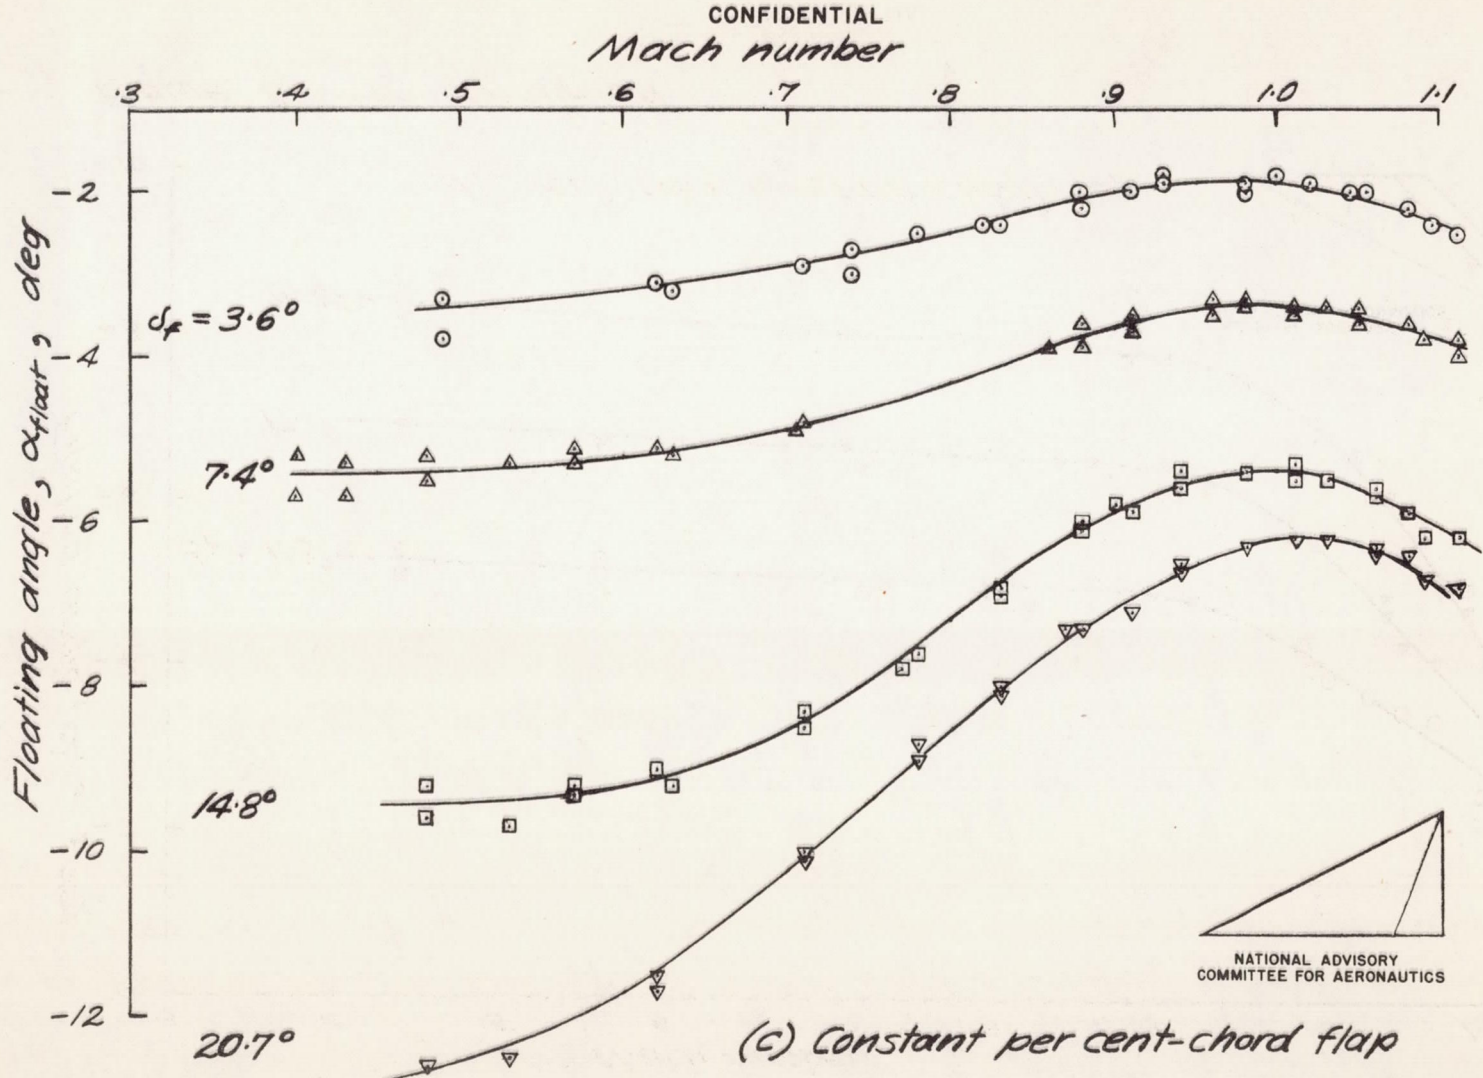 CONFIDENTIAL
Mach number
.3 .4 .5 .6 .7 .8 .9 1.0 1.1
Floating angle, αfloat, deg
-2
-4
-6
-8
-10
-12
δf = 3.6°
7.4°
14.8°
20.7°
NATIONAL ADVISORY
COMMITTEE FOR AERONAUTICS
(c) Constant per cent-chord flap